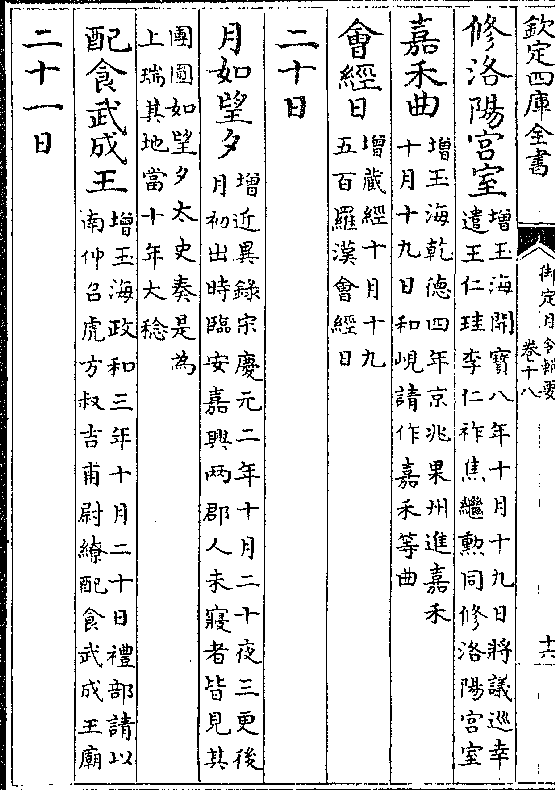 欽定四庫全書
御定月令輯要
卷十八
十六
修洛陽宮室
增玉海開寶八年十月十九日將議巡幸
遣王仁珪李仁祚焦繼勲同修洛陽宮室
嘉禾曲
增玉海乾德四年京兆果州進嘉禾
十月十九日和峴請作嘉禾等曲
會經日
增藏經十月十九
五百羅漢會經日
二十日
月如望夕
增近異錄宗慶元二年十月二十夜三更後
月初出時臨安嘉興兩郡人未寢者皆見其
團圓如望夕太史奏是為
上瑞其地當十年大稔
配食武成王
增玉海政和三年十月二十日禮部請以
南仲召虎方叔吉甫尉繚配食武成王廟
二十一日